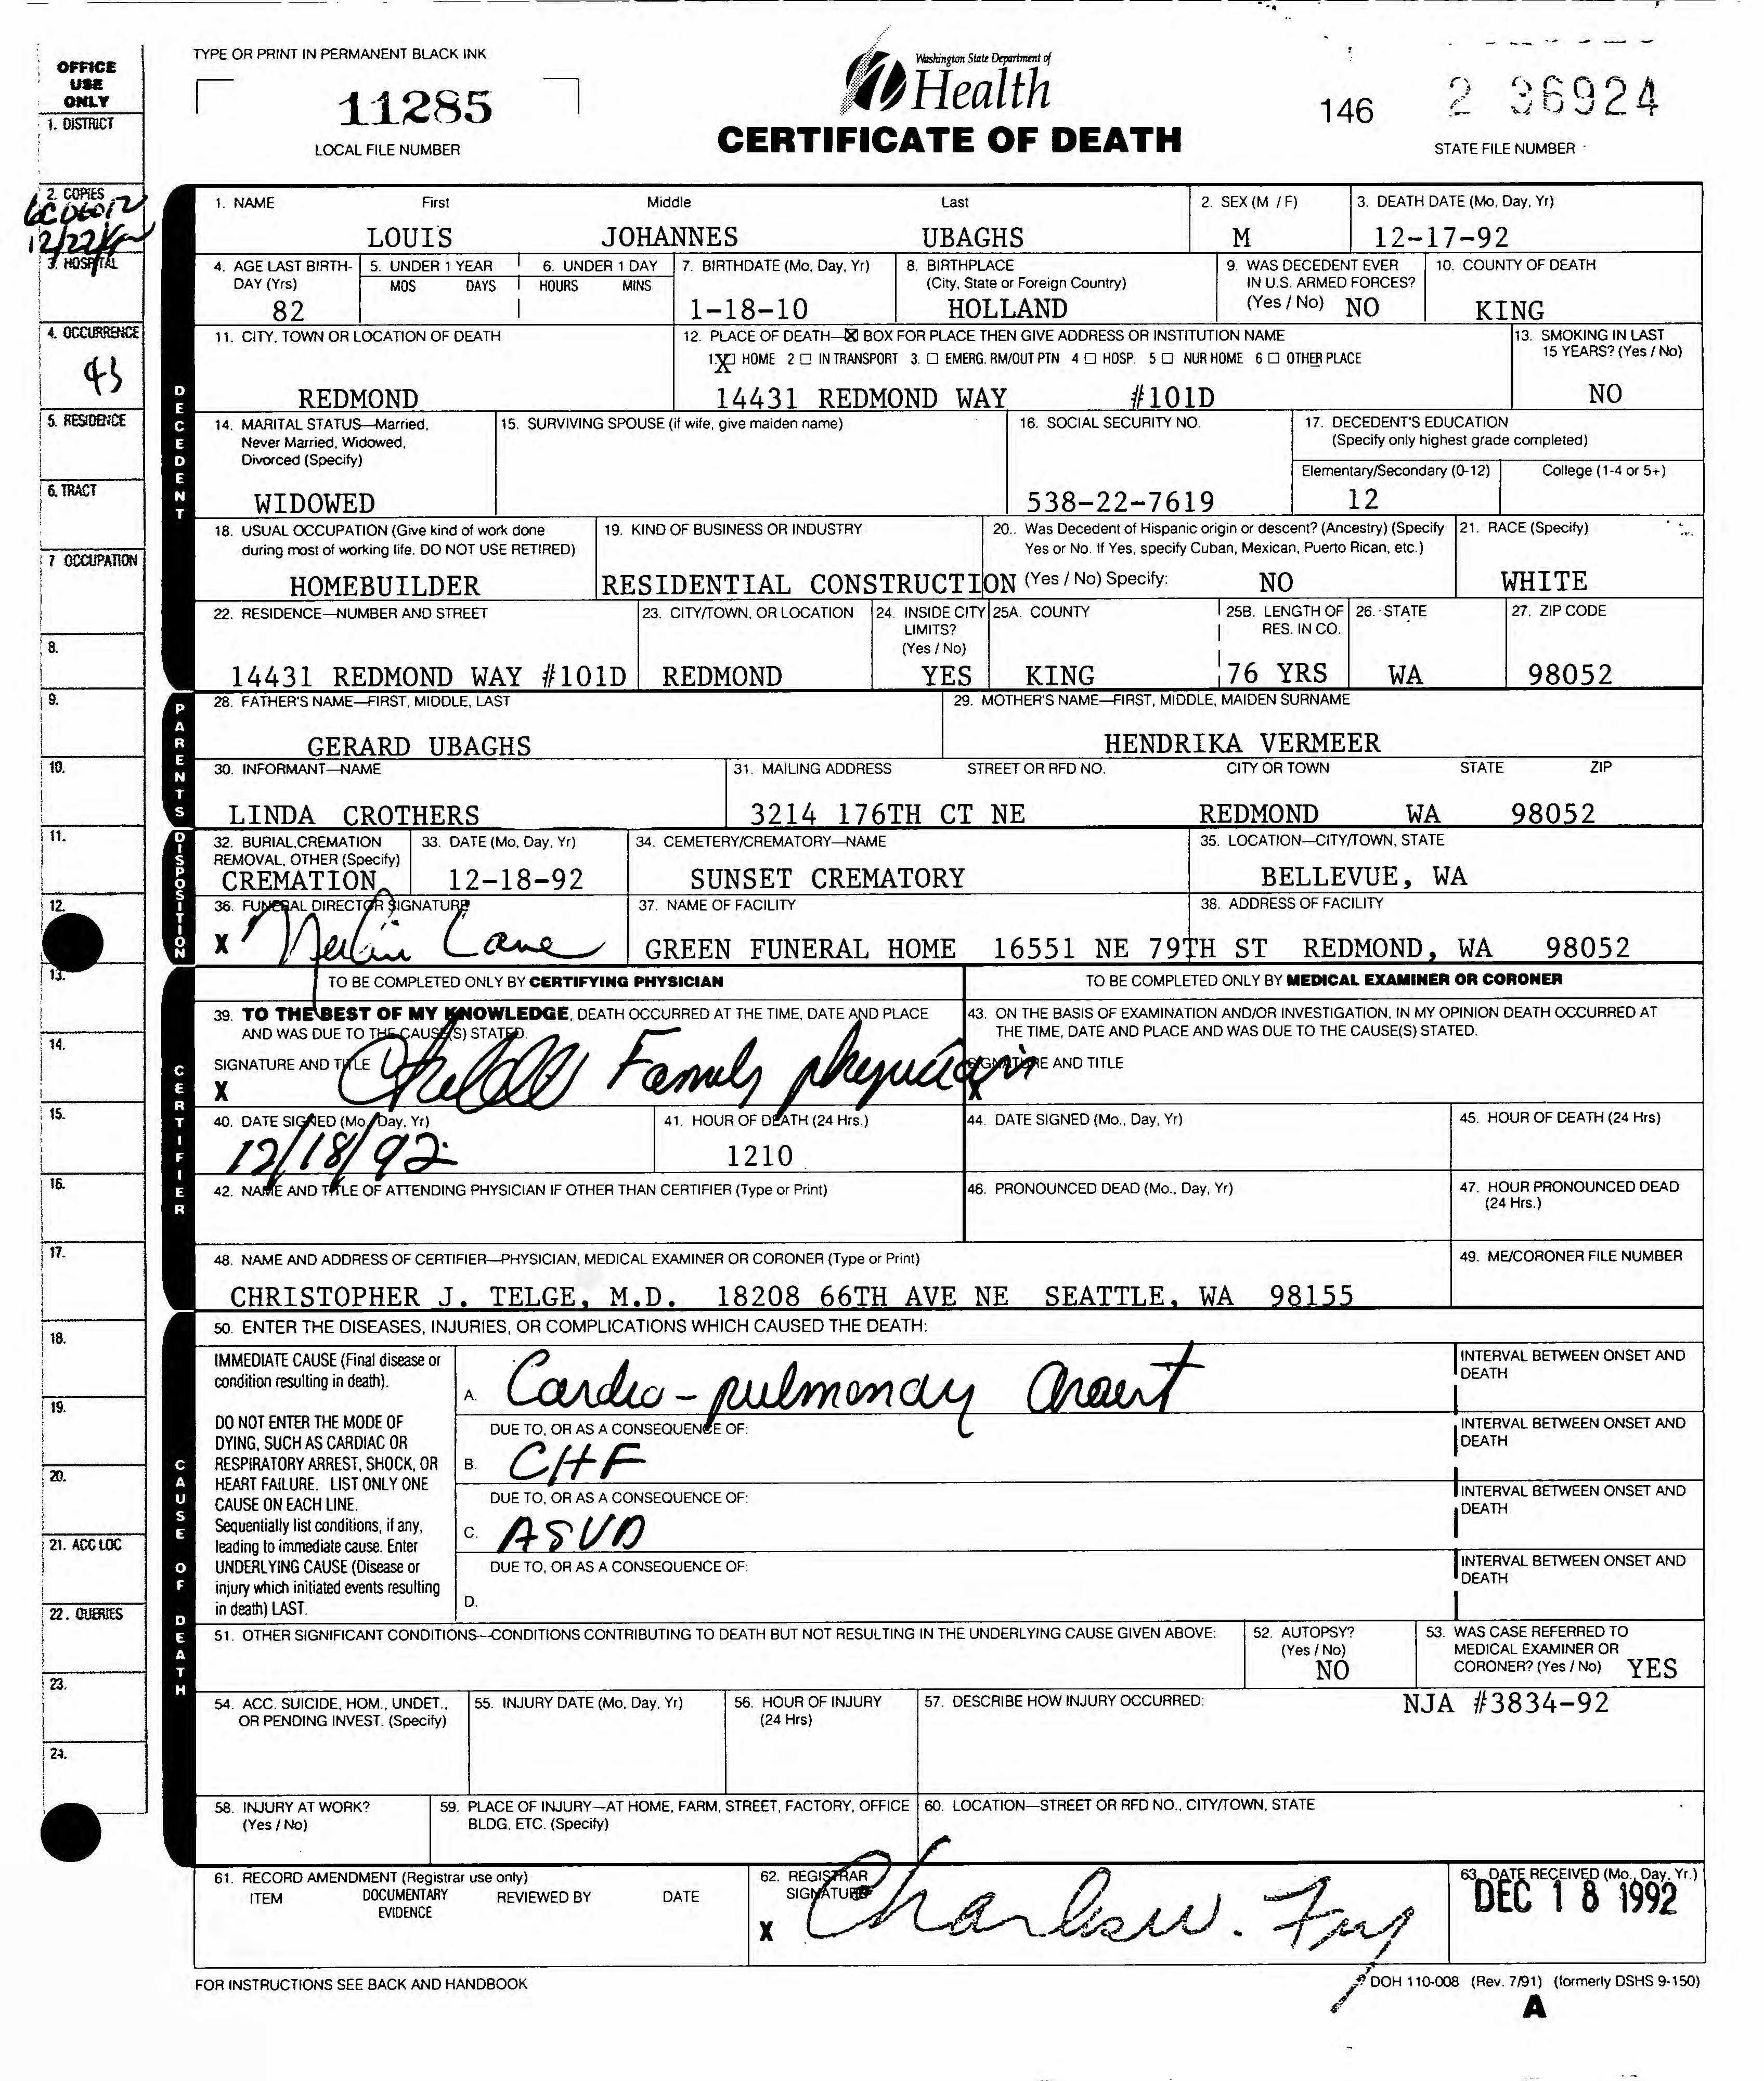 TYPE OR PRINT IN PERMANENT BLACK INK
OFFICE USE ONLY
11285
LOCAL FILE NUMBER
Washington State Department of
Health
CERTIFICATE OF DEATH
146
2 36924
STATE FILE NUMBER
1. DISTRICT
2. COPIES
12/22
3. HOSPITAL
4. OCCURRENCE
43
5. RESIDENCE
6. TRACT
7 OCCUPATION
8.
9.
10.
11.
12.
13.
14.
15.
16.
17.
18.
19.
20.
21. ACC LOC
22. QUERIES
23.
24.
DECEDENT
1. NAME First Middle Last
LOUIS JOHANNES UBAGHS
2. SEX (M / F)
M
3. DEATH DATE (Mo, Day, Yr)
12-17-92
4. AGE LAST BIRTH-
DAY (Yrs)
82
5. UNDER 1 YEAR
MOS DAYS
6. UNDER 1 DAY
HOURS MINS
7. BIRTHDATE (Mo, Day, Yr)
1-18-10
8. BIRTHPLACE
(City, State or Foreign Country)
HOLLAND
9. WAS DECEDENT EVER
IN U.S. ARMED FORCES?
(Yes / No) NO
10. COUNTY OF DEATH
KING
11. CITY, TOWN OR LOCATION OF DEATH
REDMOND
12. PLACE OF DEATH—☒ BOX FOR PLACE THEN GIVE ADDRESS OR INSTITUTION NAME
1 ☒ HOME 2 ☐ IN TRANSPORT 3. ☐ EMERG. RM/OUT PTN 4 ☐ HOSP. 5 ☐ NUR HOME 6 ☐ OTHER PLACE
14431 REDMOND WAY #101D
13. SMOKING IN LAST
15 YEARS? (Yes / No)
NO
14. MARITAL STATUS—Married,
Never Married, Widowed,
Divorced (Specify)
WIDOWED
15. SURVIVING SPOUSE (if wife, give maiden name)
16. SOCIAL SECURITY NO.
538-22-7619
17. DECEDENT'S EDUCATION
(Specify only highest grade completed)
Elementary/Secondary (0-12) College (1-4 or 5+)
12
18. USUAL OCCUPATION (Give kind of work done
during most of working life. DO NOT USE RETIRED)
HOMEBUILDER
19. KIND OF BUSINESS OR INDUSTRY
RESIDENTIAL CONSTRUCTION
20.. Was Decedent of Hispanic origin or descent? (Ancestry) (Specify
Yes or No. If Yes, specify Cuban, Mexican, Puerto Rican, etc.)
(Yes / No) Specify: NO
21. RACE (Specify)
WHITE
22. RESIDENCE—NUMBER AND STREET
14431 REDMOND WAY #101D
23. CITY/TOWN, OR LOCATION
REDMOND
24. INSIDE CITY
LIMITS?
(Yes / No)
YES
25A. COUNTY
KING
25B. LENGTH OF
RES. IN CO.
76 YRS
26. STATE
WA
27. ZIP CODE
98052
PARENTS
28. FATHER'S NAME—FIRST, MIDDLE, LAST
GERARD UBAGHS
29. MOTHER'S NAME—FIRST, MIDDLE, MAIDEN SURNAME
HENDRIKA VERMEER
30. INFORMANT—NAME
LINDA CROTHERS
31. MAILING ADDRESS STREET OR RFD NO. CITY OR TOWN STATE ZIP
3214 176TH CT NE REDMOND WA 98052
DISPOSITION
32. BURIAL, CREMATION
REMOVAL, OTHER (Specify)
CREMATION
33. DATE (Mo, Day, Yr)
12-18-92
34. CEMETERY/CREMATORY—NAME
SUNSET CREMATORY
35. LOCATION—CITY/TOWN, STATE
BELLEVUE, WA
36. FUNERAL DIRECTOR SIGNATURE
X Merlin Lane
37. NAME OF FACILITY
GREEN FUNERAL HOME
38. ADDRESS OF FACILITY
16551 NE 79TH ST REDMOND, WA 98052
CERTIFIER
TO BE COMPLETED ONLY BY CERTIFYING PHYSICIAN
39. TO THE BEST OF MY KNOWLEDGE, DEATH OCCURRED AT THE TIME, DATE AND PLACE
AND WAS DUE TO THE CAUSE(S) STATED.
SIGNATURE AND TITLE
X Family physician
40. DATE SIGNED (Mo, Day, Yr)
12/18/92
41. HOUR OF DEATH (24 Hrs.)
1210
42. NAME AND TITLE OF ATTENDING PHYSICIAN IF OTHER THAN CERTIFIER (Type or Print)
TO BE COMPLETED ONLY BY MEDICAL EXAMINER OR CORONER
43. ON THE BASIS OF EXAMINATION AND/OR INVESTIGATION, IN MY OPINION DEATH OCCURRED AT
THE TIME, DATE AND PLACE AND WAS DUE TO THE CAUSE(S) STATED.
SIGNATURE AND TITLE
X
44. DATE SIGNED (Mo., Day, Yr)
45. HOUR OF DEATH (24 Hrs)
46. PRONOUNCED DEAD (Mo., Day, Yr)
47. HOUR PRONOUNCED DEAD
(24 Hrs.)
48. NAME AND ADDRESS OF CERTIFIER—PHYSICIAN, MEDICAL EXAMINER OR CORONER (Type or Print)
CHRISTOPHER J. TELGE, M.D. 18208 66TH AVE NE SEATTLE, WA 98155
49. ME/CORONER FILE NUMBER
CAUSE OF DEATH
50. ENTER THE DISEASES, INJURIES, OR COMPLICATIONS WHICH CAUSED THE DEATH:
IMMEDIATE CAUSE (Final disease or
condition resulting in death).
DO NOT ENTER THE MODE OF
DYING, SUCH AS CARDIAC OR
RESPIRATORY ARREST, SHOCK, OR
HEART FAILURE. LIST ONLY ONE
CAUSE ON EACH LINE.
Sequentially list conditions, if any,
leading to immediate cause. Enter
UNDERLYING CAUSE (Disease or
injury which initiated events resulting
in death) LAST.
A. Cardio-pulmonary arrest
INTERVAL BETWEEN ONSET AND
DEATH
DUE TO, OR AS A CONSEQUENCE OF:
B. CHF
INTERVAL BETWEEN ONSET AND
DEATH
DUE TO, OR AS A CONSEQUENCE OF:
C. ASVD
INTERVAL BETWEEN ONSET AND
DEATH
DUE TO, OR AS A CONSEQUENCE OF:
D.
INTERVAL BETWEEN ONSET AND
DEATH
51. OTHER SIGNIFICANT CONDITIONS—CONDITIONS CONTRIBUTING TO DEATH BUT NOT RESULTING IN THE UNDERLYING CAUSE GIVEN ABOVE:
52. AUTOPSY?
(Yes / No)
NO
53. WAS CASE REFERRED TO
MEDICAL EXAMINER OR
CORONER? (Yes / No) YES
54. ACC. SUICIDE, HOM., UNDET.,
OR PENDING INVEST. (Specify)
55. INJURY DATE (Mo, Day, Yr)
56. HOUR OF INJURY
(24 Hrs)
57. DESCRIBE HOW INJURY OCCURRED:
NJA #3834-92
58. INJURY AT WORK?
(Yes / No)
59. PLACE OF INJURY—AT HOME, FARM, STREET, FACTORY, OFFICE
BLDG, ETC. (Specify)
60. LOCATION—STREET OR RFD NO., CITY/TOWN, STATE
61. RECORD AMENDMENT (Registrar use only)
ITEM DOCUMENTARY EVIDENCE REVIEWED BY DATE
62. REGISTRAR
SIGNATURE
X Charles W. Fry
63. DATE RECEIVED (Mo., Day, Yr.)
DEC 18 1992
FOR INSTRUCTIONS SEE BACK AND HANDBOOK
DOH 110-008 (Rev. 7/91) (formerly DSHS 9-150)
A